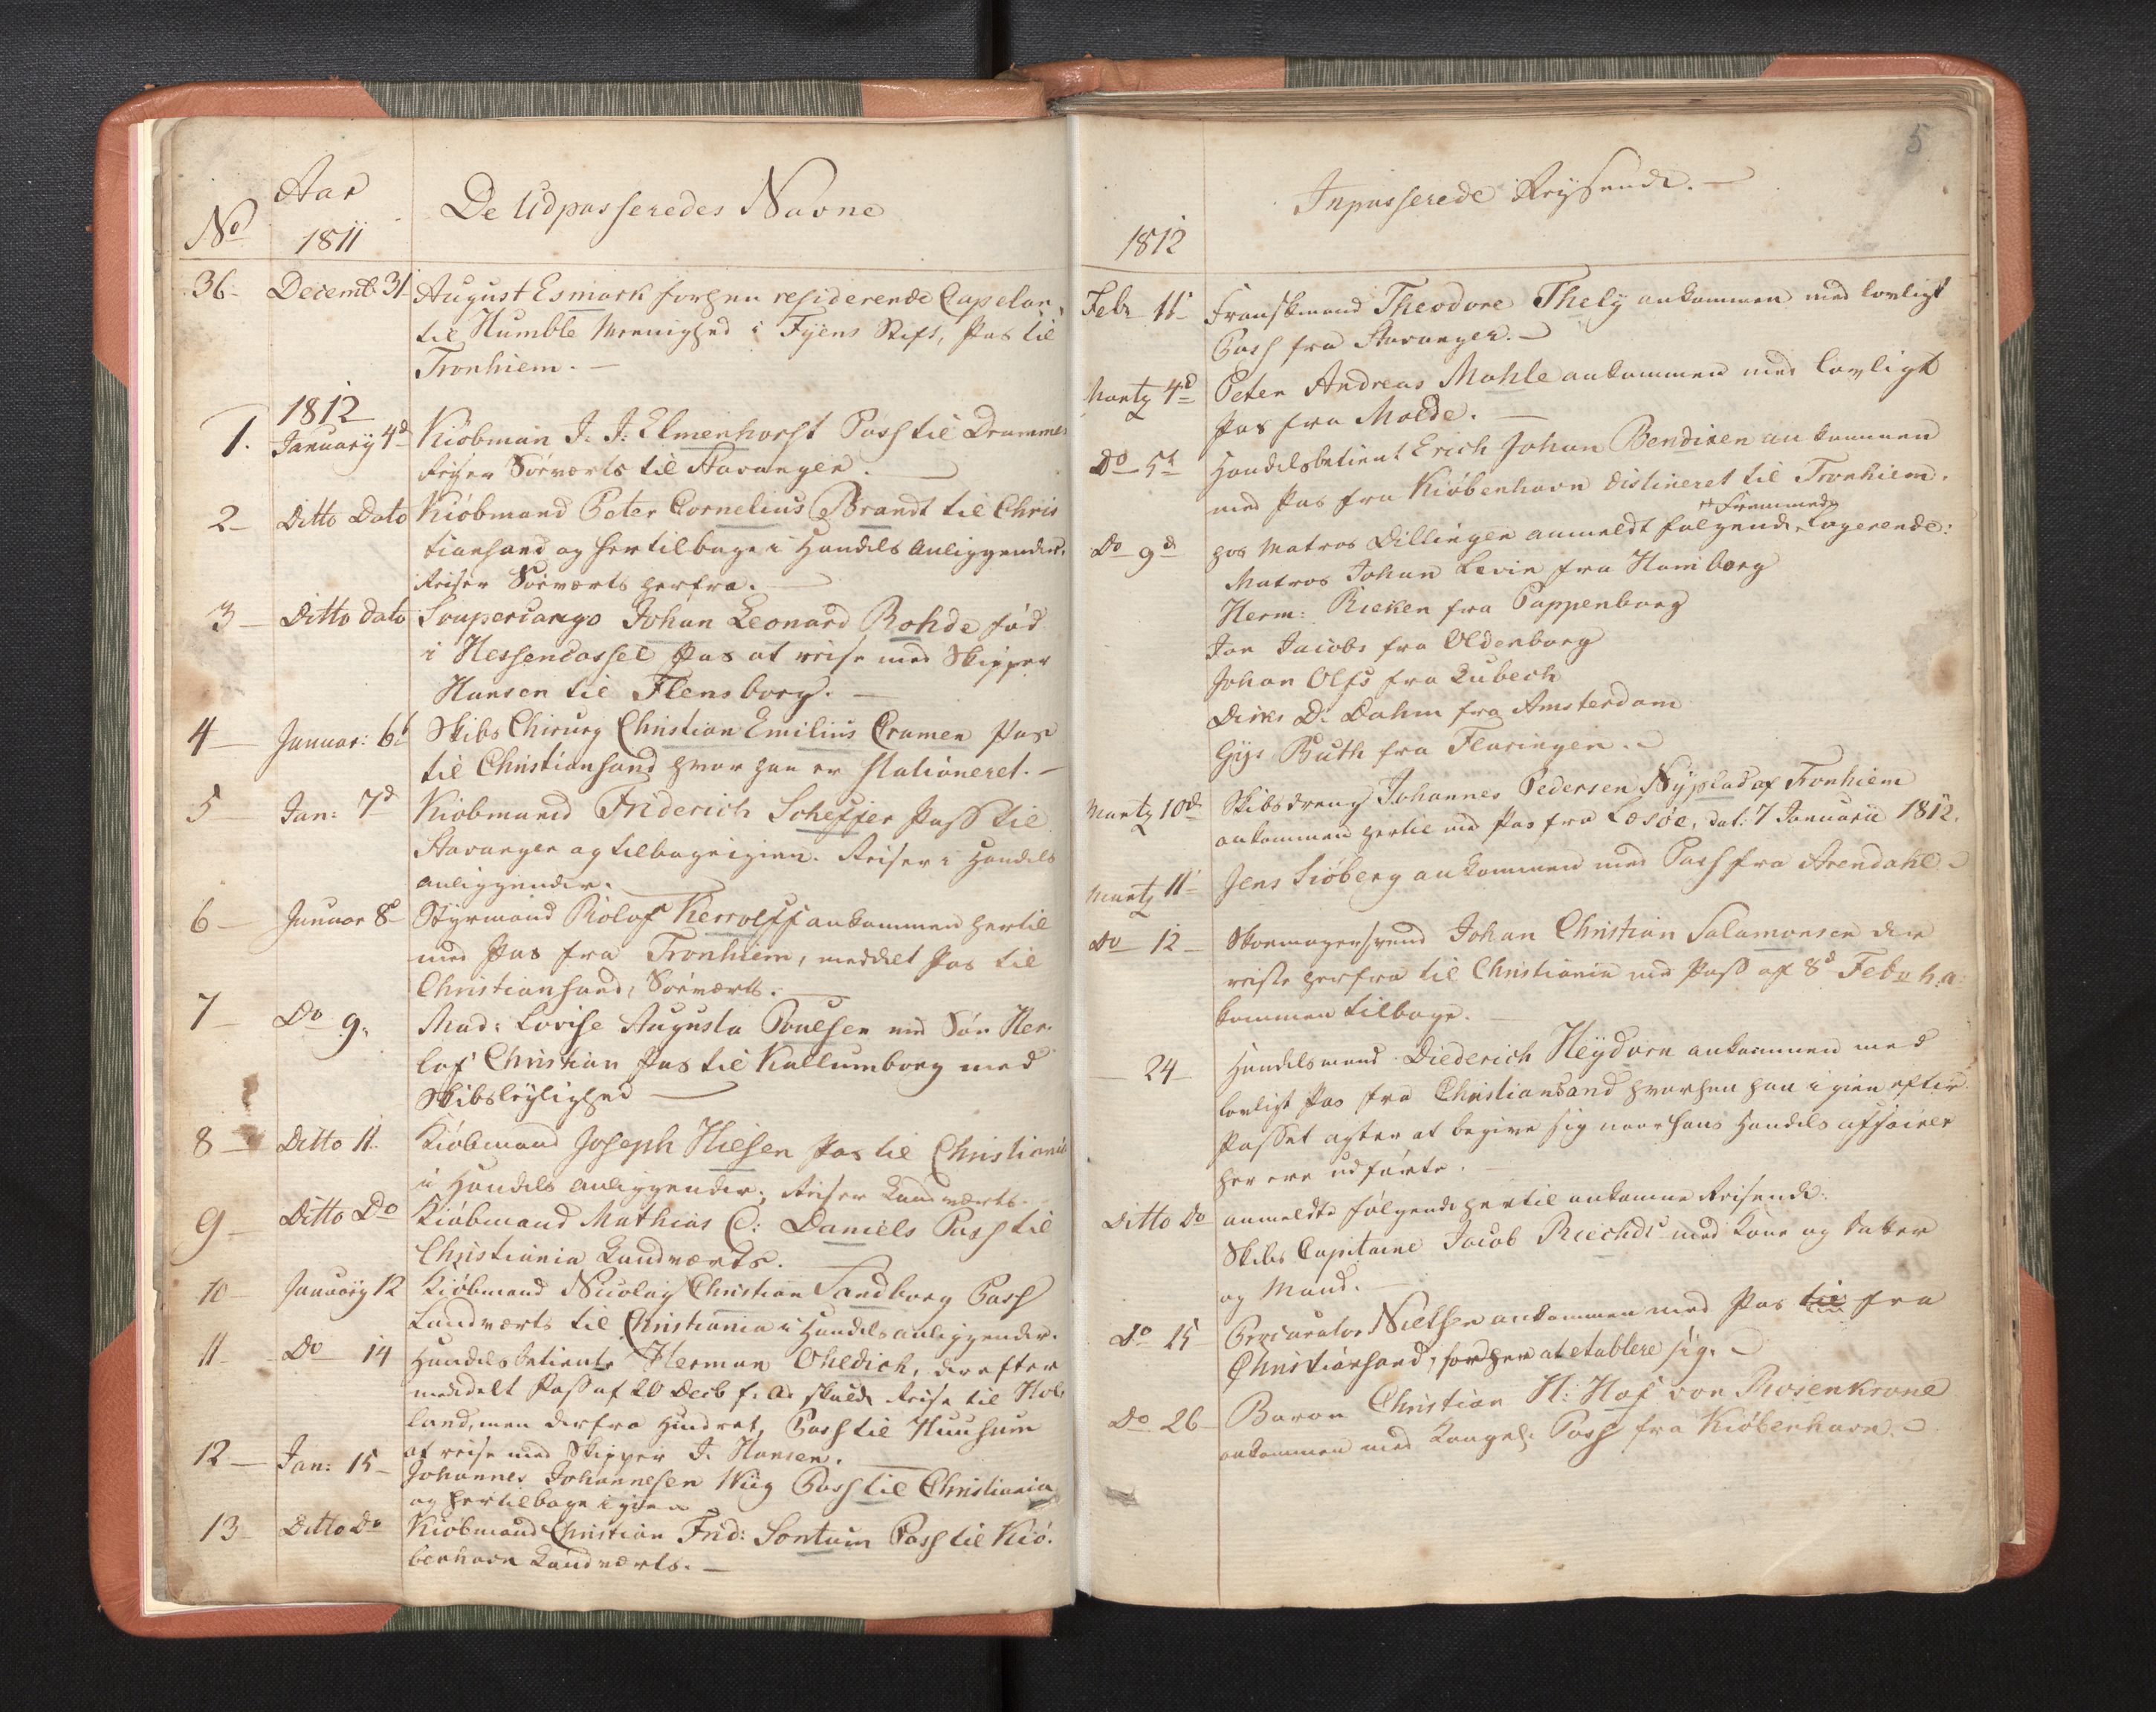 Aar
No
1811
De Udpasseredes Navne
36 - Decemb. 31 August Esmark forhen residerende Capelan
til Humble Meenighed i Fyens Stift, Pas til
Tronhiem. -
1812
1. Januarÿ 4d Kiöbman J. J: Elmenhorst Pass til Drammen
Reiser Söeværts til Stavanger.
2 - Ditto Dato Kiöbmand Peter Cornelius Brandt til Chris
tiansand og her tilbage i Handels Anliggender.
Reiser Söeværts herfra.
3 - Ditto dato Soupercargo Johan Leonard Rohde fød
i Hessencassel Pas at reise med Skipper
Hansen til Flensborg. -
4 - Januar: 6t Skibs Chirurg Christian Emilius Cramer Pas
til Christiansand hvor han er stationeret. -
5 Jan: 7d Kiöbmand Friderich Scheffer Pass til
Stavanger og tilbage igien. Reiser i Handels
anliggender.
6 - Januar 8d Styrmand Rolof Kerrolff ankommen hertil
med Pas fra Tronhiem, meddelt Pas til
Christiansand, Söeværts.
7 - Do 9. Mad: Lovise Augusta Poulsen med Sön Her
lof Christian Pas til Kallumborg med
Skibsleÿlighed
8 - Ditto 11. Kiöbmand Joseph Nielsen Pas til Christiania
i Handels anliggender; Reiser Landværts.
9 - Ditto Do Kiöbmand Mathias C: Daniels Pass til
Christiania Landværts.
10 - Januarÿ 12 Kiöbmand Nicolaÿ Christian Sandborg Pass
Landværts til Christiania i Handels anliggender.
11 - Do 14 Handels betiente Herman Ohldich, der efter
meddelt Pass af 20 Decb f. A. skulde Reise til Hol
land, men derfra hindret, Pass til Huusum
at reise med Skipper J. Hansen.
12 - Jan: 15 - Johannes Johannesen Wiig Pass til Christiania
og her tilbage igien
13 - Ditto Do Kiöbmand Christian Frid: Sontum Pass til Kiö-
benhavn Landværts. -
5
Inpasserede Reysende. -
1812
Febr 11 - Franskmand Theodore Thelÿ ankommen med lovligt
Pass fra Stavanger. -
Martz 4d Peter Andreas Mohle ankommen med lovligt
Pas fra Molde. -
Do 5t Handelsbetient Erich Johan Bendixen ankommen
med Pas fra Kiöbenhavn distineret til Tronhiem.
+ Fremmede
Do 9d hos Matros Dillinger anmeldt følgende + Logerende:
Matros Johan Levin fra Hamborg
Herm: Rieken fra Pappenborg
Jan Jacobs fra Oldenborg
Johan Olfs fra Lubech
Dirks D: Dahm fra Amsterdam
Gÿs Buth fra Flasingen.
Martz 10d Skibsdreng Johannes Pedersen Nÿplads af Tronhiem
ankommen hertil med Pas fra Læsöe, dat: 7 Januarii 1812.
Martz 11 - Jens Siöberg ankommen med Pass fra Arendahl
Do 12 - Skomagersvend Johan Christian Salamonsen der
reiste herfra til Christiania med Pass af 8d Febr h. a:
kommen tilbage.
- 24 - Handelsmand Diederich Heÿdorn ankommen med
lovligt Pas fra Christiansand hvorhen han igien efter
Passet agter at begive sig naar hans Handels affairer
her ere udførte.
Ditto Do anmeldte følgende hertil ankomne Reisende:
Skibs Capitaine Jacob Riechds med Kone og Datter
og Mand.
Do 25 Procurator Nielsen ankommen med Pas til fra
Christiansand, for her at etablere sig.
Do 26 - Baron Christian H: Hof von Rosenkrone
ankommen med Kongel: Pass fra Kiöbenhavn.